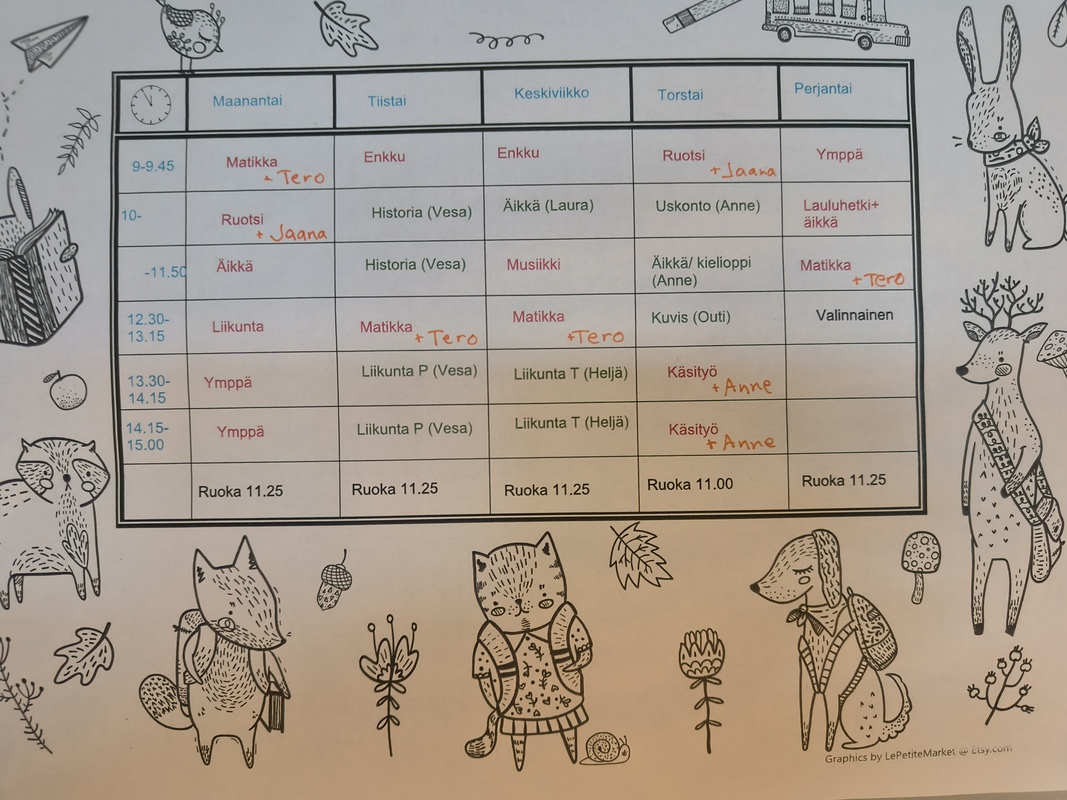 Maanantai Tiistai Keskiviikko Torstai Perjantai
9-9.45 Matikka Enkku Enkku Ruotsi Ymppä
+ Tero +Jaana
10- Ruotsi Historia (Vesa) Äikkä (Laura) Uskonto (Anne) Lauluhetki+
+ Jaana äikkä
-11.50 Äikkä Historia (Vesa) Musiikki Äikkä/ kielioppi Matikka
(Anne) +Tero
12.30- Liikunta Matikka Matikka Kuvis (Outi) Valinnainen
13.15 +Tero +Tero
13.30- Ymppä Liikunta P (Vesa) Liikunta T (Heljä) Käsityö
14.15 +Anne
14.15- Ymppä Liikunta P (Vesa) Liikunta T (Heljä) Käsityö
15.00 +Anne
Ruoka 11.25 Ruoka 11.25 Ruoka 11.25 Ruoka 11.00 Ruoka 11.25
Graphics by LePetiteMarket @ Etsy.com